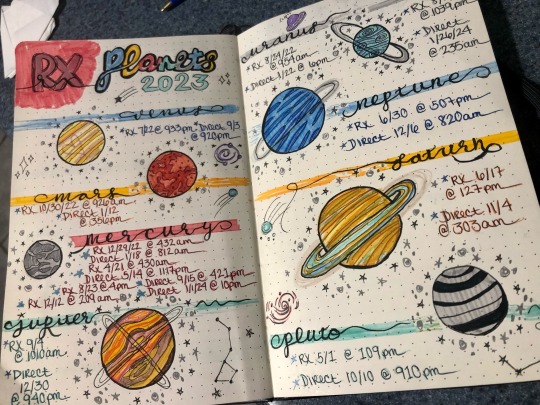 RX Planets
2023
venus
*RX 7/22 @ 933pm *Direct 9/3
@ 920pm
mars
RX 10/30/22 @ 926am
Direct 1/12
@ 356pm
mercury
RX 12/29/22 @ 432am
Direct 1/18 @ 812am
RX 4/21 @ 430am
Direct 5/14 @ 1117pm
RX 8/23 @ 4pm Direct 9/15 @ 421pm
RX 12/12 @ 209am Direct 1/1/24 @ 10pm
Jupiter
*RX 9/4
@ 1010am
*Direct
12/30
@ 940pm
uranus
RX 8/24/22
@ 954am
*Direct 1/22 @ 6pm
@ 1039pm
*Direct
1/26/24
@ 235am
neptune
*RX 6/30 @ 507pm
*Direct 12/6 @ 820am
Saturn
*RX 6/17
@ 127pm
*Direct 11/4
@ 303am
pluto
*RX 5/1 @ 109pm
*Direct 10/10 @ 910pm